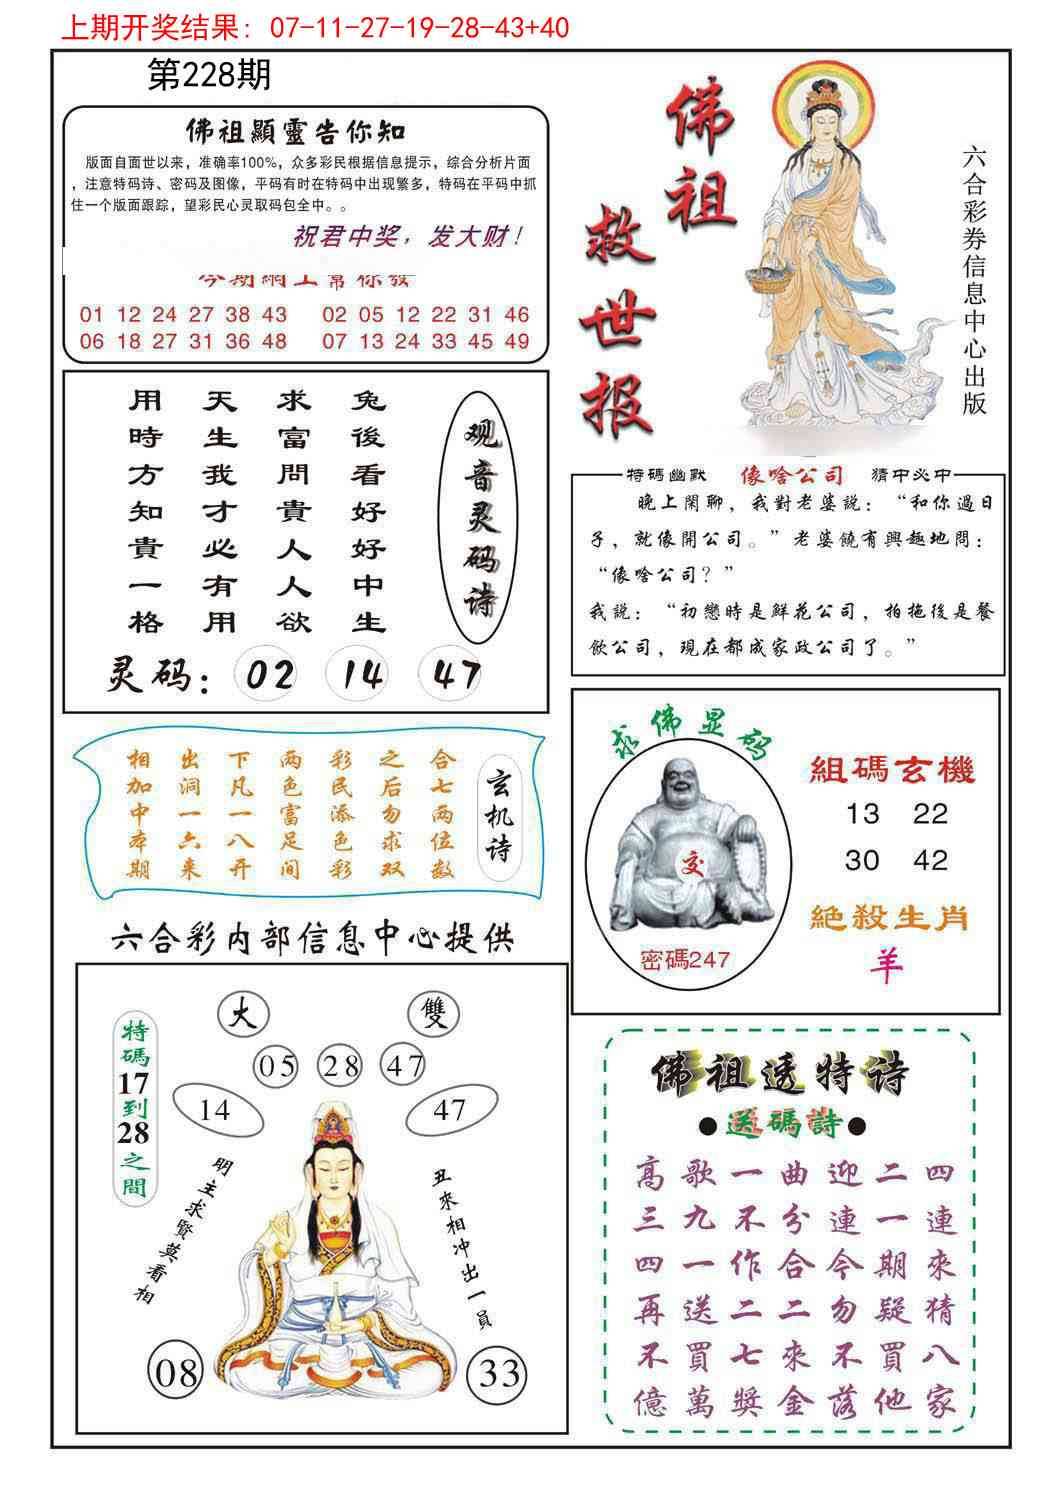 上期开奖结果: 07-11-27-19-28-43+40
第228期
佛祖顯靈告你知
版面自面世以来，准确率100%，众多彩民根据信息提示，综合分析片面
，注意特码诗、密码及图像，平码有时在特码中出现繁多，特码在平码中抓
住一个版面跟踪，望彩民心灵取码包全中。。
祝君中奖，发大财！
今期網上幫你發
01 12 24 27 38 43 02 05 12 22 31 46
06 18 27 31 36 48 07 13 24 33 45 49
佛祖
救世报
六合彩券信息中心出版
观音灵码诗
兔後看好好中生
求富問貴人人欲
天生我才必有用
用時方知貴一格
灵码：02 14 47
特碼幽默 像啥公司 猜中必中
晚上閑聊，我對老婆説：“和你過日
子，就像開公司。”老婆饒有興趣地問：
“像啥公司？”
我説：“初戀時是鮮花公司，拍拖後是餐
飲公司，現在都成家政公司了。”
玄机诗
合七两位数
之后勿求双
彩民添色彩
两色富足间
下凡一八开
出洞一六来
相加中本期
求佛显码
交
密碼247
組碼玄機
13 22
30 42
絕殺生肖
羊
六合彩内部信息中心提供
大 雙
05 28 47
14 47
特碼17到28之間
明主求賢莫看相
丑來相冲出一員
08 33
佛祖透特诗
●送碼詩●
高歌一曲迎二四
三九不分連一連
四一作合今期來
再送二二勿疑猜
不買七來不買八
億萬獎金落他家